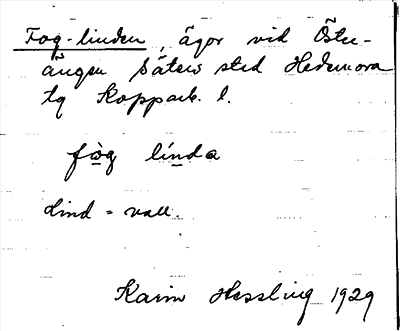 Fog-linden, ägor vid Öster-
ängen Säters stad Hedemora
tg Kopparb. l.
fo̱g liṉda
Lind = vall.
Karin Hessling 1929